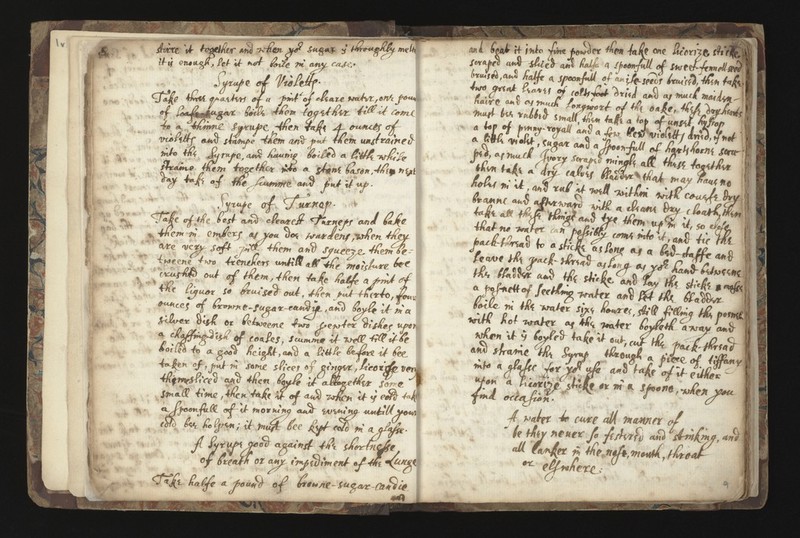 stirre it together and when yor sugar is throughly melte
it is enough, let it not boile in any case.
Syrupe of Violetts.
Take three quarters of a pint of cleare water, one poun
of loafe-sugar boile them together till it come
to a thinne syrupe, then take 4 ounces of
violetts and stampe them and put them unstrained
into the Syrupe, and having boiled a little while
straine them together into a stone bason, then next
day take of the scumme and put it up.
Syrupe of Turnop.
Take of the best and clearest Turneps and bake
them in embers as you doe wardens, when they
are very soft pill them and squeeze them be-
tweene two trenchers untill all the moisture bee
crushed out of them, then take halfe a pint of
the liquor so bruised out, then put therto, foure
ounces of browne-sugar-candie, and boyle it in a
silver dish or betweene two pewter dishes upon
a chaffing dish of coales, scumme it well till it be
boiled to a good height, and a little before it bee
taken of, put in some slices of ginger, licorise very
thin sliced and then boyle it alltogether some
small time, then take it of and when it is cold take
a spoonfull of it morning and evening untill your
cold bee holpen; it must bee kept cold in a glasse.
A Syrupe good against the shortnesse
of breath or any impediment of the Lunge
Take halfe a pound of browne-sugar-candie
and
and beat it into fine powder then take one licorize sticke
scraped and sliced and halfe a spoonfull of sweet-fennell seed
bruised, and halfe a spoonfull of anise-seeds bruised, then take
two great leaves of colts-foot dried and as much maiden-
haire and as much longwort of the oake, these
must bee rubbid small, then take a top of unset, hyssop
a top of penny-royall and a few violetts dried, if not
a little violet, sugar and a spoonfull of hartshorne scra-
ped, as much Ivory scraped mingle all these together
then take a dry calves bladder that may have no
holes in it, and rub it well within with course dry
branne and afterward with a cleane dry cloath, then
take all these things and tye them up in it, so close
that no water can possibly come into it, and tie the
pack-thread to a sticke as long as a bed-staffe and
leave the pack-thread as long as yor hand betweene
the bladder and the sticke, and lay the sticke
a posnett of seething water and let the bladder
boile in the water sixe houres, still filling the posnett
with hot water as the water boyleth away and
when it is boyled take it out, cut the pack-thread
and straine the Syrup through a piece of tiffany
into a glasse for yor use and take of it either
upon a licorize sticke or in a spoone, when you
find occasion.
A water to cure all manner of
be they never so festered and stinking, and
all Canker in the nose, mouth, throat
or elswhere: